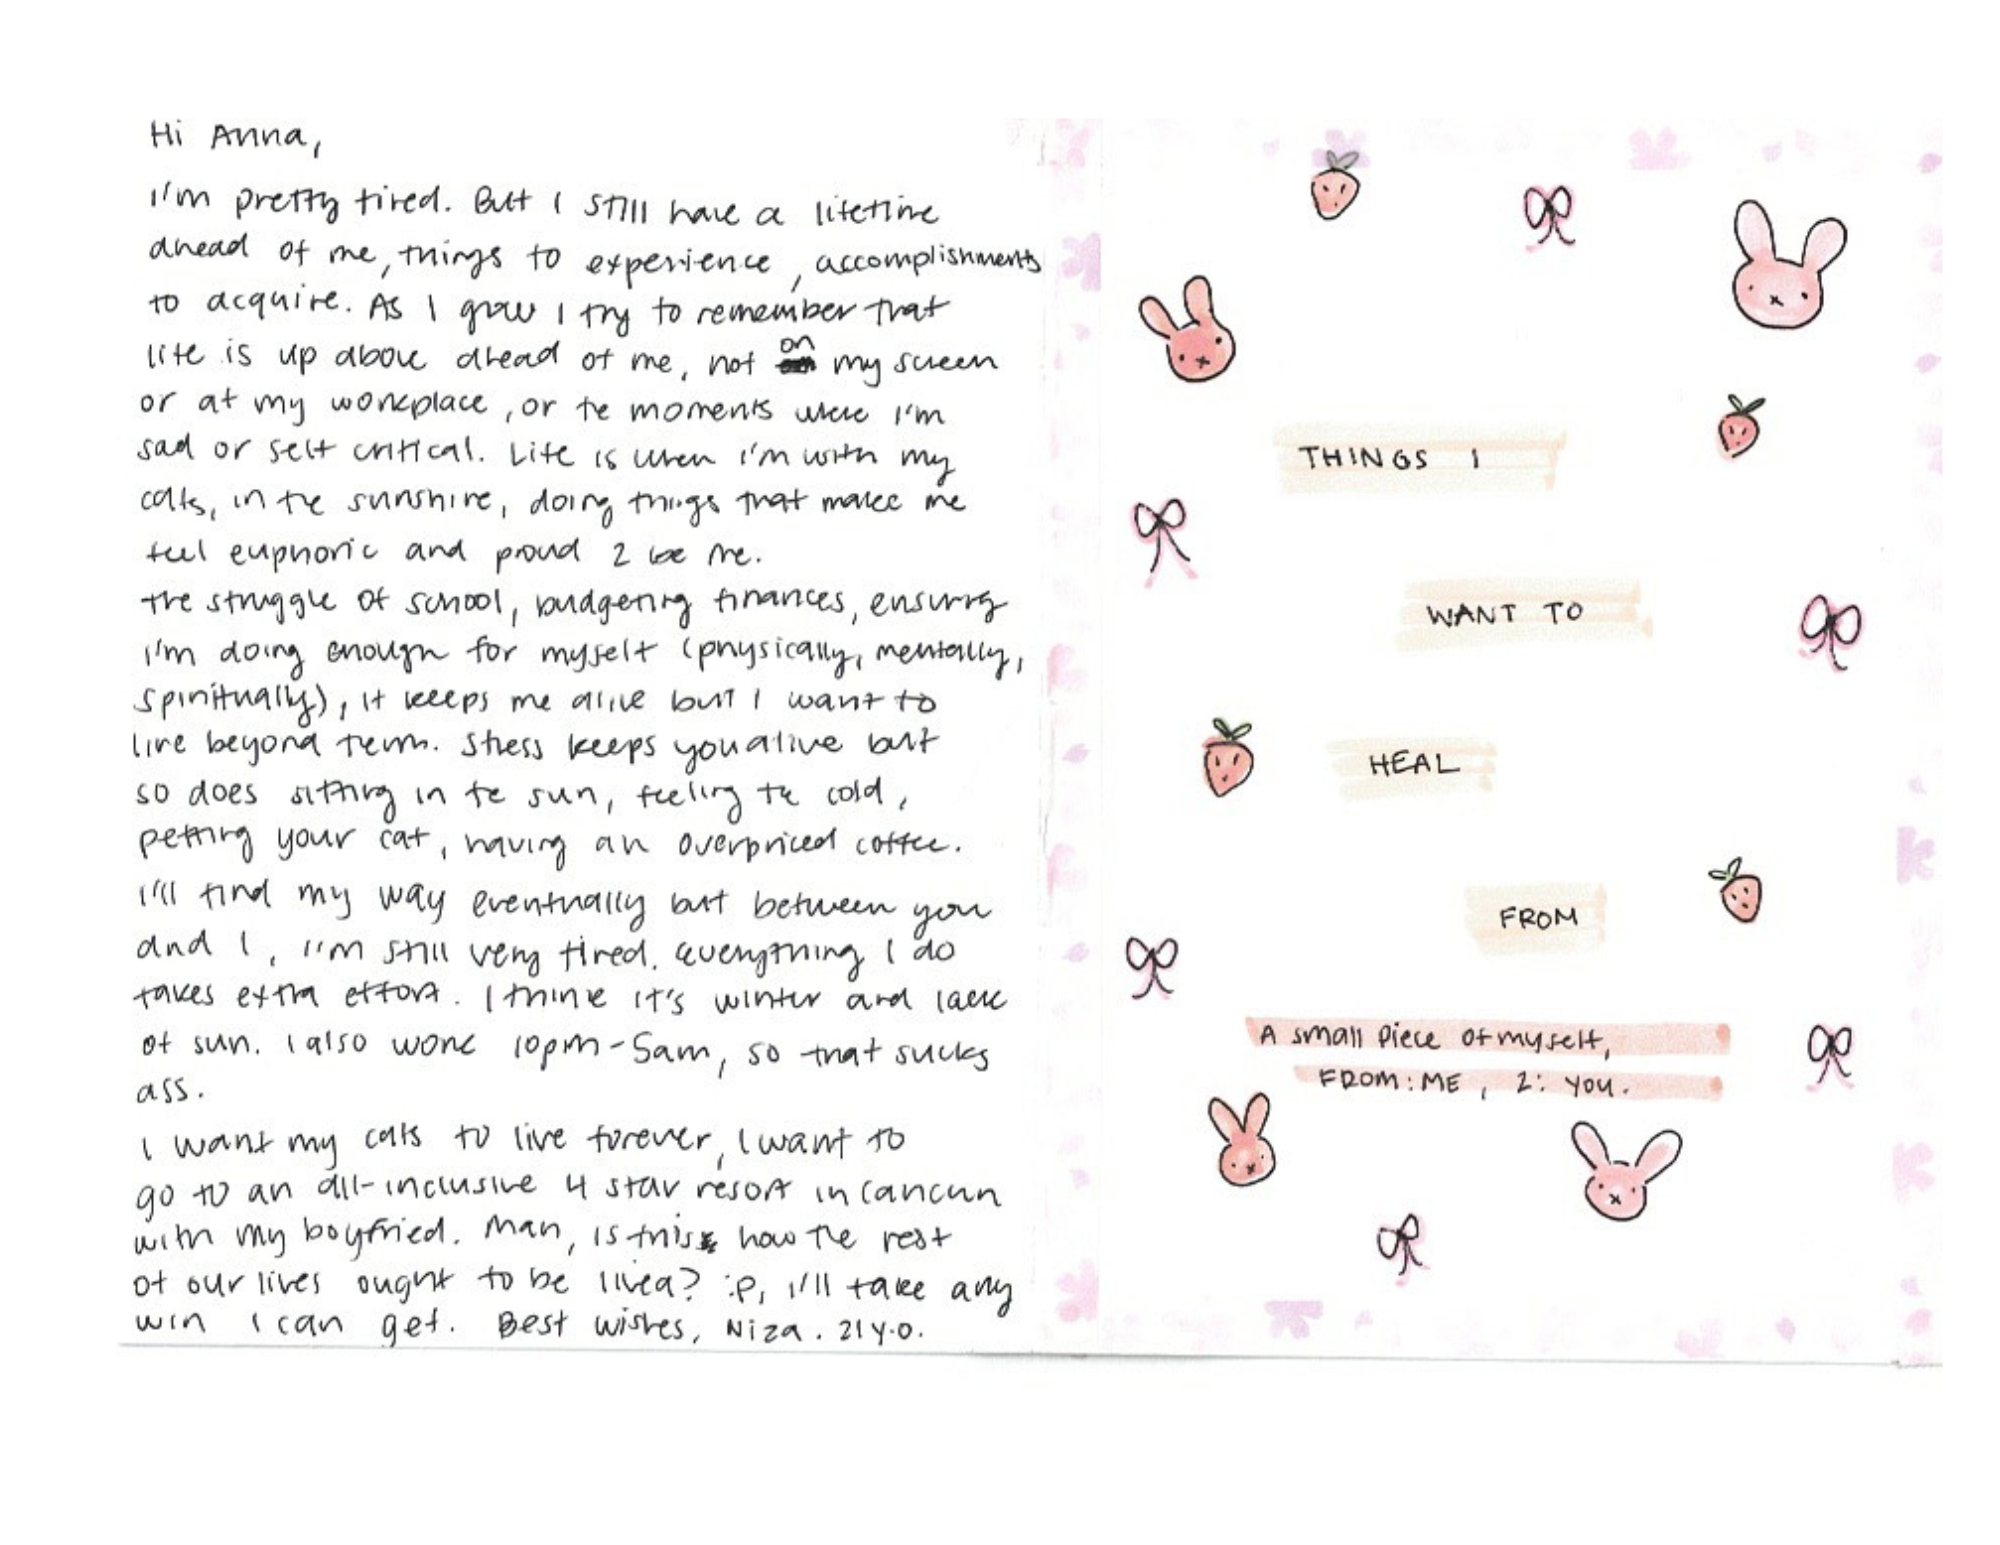 Hi Anna,
I'm pretty tired. But I still have a lifetime
ahead of me, things to experience, accomplishments
to acquire. As I grow I try to remember that
life is up above ahead of me, not on my screen
or at my workplace, or the moments where I'm
sad or self critical. Life is when I'm with my
cats, in the sunshine, doing things that make me
feel euphoric and proud 2 be me.
the struggle of school, budgeting finances, ensuring
I'm doing enough for myself (physically, mentally,
spiritually), it keeps me alive but I want to
live beyond them. Stress keeps you alive but
so does sitting in the sun, feeling the cold,
petting your cat, having an overpriced coffee.
I'll find my way eventually but between you
and I, I'm still very tired. Everything I do
takes extra effort. I think it's winter and lack
of sun. I also work 10pm-5am, so that sucks
ass.
I want my cats to live forever, I want to
go to an all-inclusive 4 star resort in Cancun
with my boyfried. Man, is this how the rest
of our lives ought to be lived? :P, I'll take any
win I can get. Best wishes, Niza. 21 y.o.
THINGS I
WANT TO
HEAL
FROM
A small piece of myself,
FROM: ME, 2: YOU.